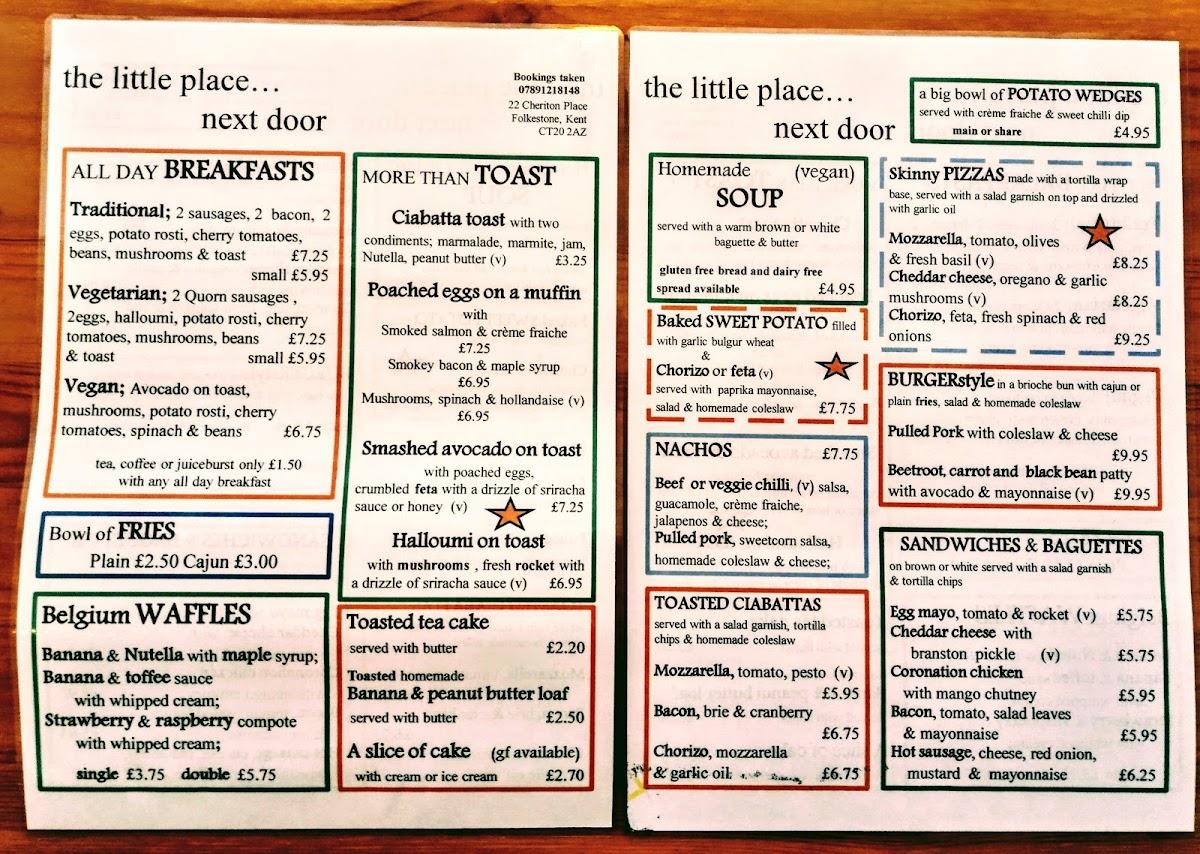 the little place…
next door
Bookings taken
07891218148
22 Cheriton Place
Folkestone, Kent
CT20 2AZ
ALL DAY BREAKFASTS
Traditional; 2 sausages, 2 bacon, 2
eggs, potato rosti, cherry tomatoes,
beans, mushrooms & toast £7.25
small £5.95
Vegetarian; 2 Quorn sausages ,
2eggs, halloumi, potato rosti, cherry
tomatoes, mushrooms, beans £7.25
& toast small £5.95
Vegan; Avocado on toast,
mushrooms, potato rosti, cherry
tomatoes, spinach & beans £6.75
tea, coffee or juiceburst only £1.50
with any all day breakfast
Bowl of FRIES
Plain £2.50 Cajun £3.00
Belgium WAFFLES
Banana & Nutella with maple syrup;
Banana & toffee sauce
with whipped cream;
Strawberry & raspberry compote
with whipped cream;
single £3.75 double £5.75
MORE THAN TOAST
Ciabatta toast with two
condiments; marmalade, marmite, jam,
Nutella, peanut butter (v) £3.25
Poached eggs on a muffin
with
Smoked salmon & crème fraiche
£7.25
Smokey bacon & maple syrup
£6.95
Mushrooms, spinach & hollandaise (v)
£6.95
Smashed avocado on toast
with poached eggs,
crumbled feta with a drizzle of sriracha
sauce or honey (v) £7.25
Halloumi on toast
with mushrooms , fresh rocket with
a drizzle of sriracha sauce (v) £6.95
Toasted tea cake
served with butter £2.20
Toasted homemade
Banana & peanut butter loaf
served with butter £2.50
A slice of cake (gf available)
with cream or ice cream £2.70
the little place…
next door
a big bowl of POTATO WEDGES
served with crème fraiche & sweet chilli dip
main or share £4.95
Homemade (vegan)
SOUP
served with a warm brown or white
baguette & butter
gluten free bread and dairy free
spread available £4.95
Baked SWEET POTATO filled
with garlic bulgur wheat
&
Chorizo or feta (v)
served with paprika mayonnaise,
salad & homemade coleslaw £7.75
NACHOS £7.75
Beef or veggie chilli, (v) salsa,
guacamole, crème fraiche,
jalapenos & cheese;
Pulled pork, sweetcorn salsa,
homemade coleslaw & cheese;
TOASTED CIABATTAS
served with a salad garnish, tortilla
chips & homemade coleslaw
Mozzarella, tomato, pesto (v)
£5.95
Bacon, brie & cranberry
£6.75
Chorizo, mozzarella
& garlic oil £6.75
Skinny PIZZAS made with a tortilla wrap
base, served with a salad garnish on top and drizzled
with garlic oil
Mozzarella, tomato, olives
& fresh basil (v) £8.25
Cheddar cheese, oregano & garlic
mushrooms (v) £8.25
Chorizo, feta, fresh spinach & red
onions £9.25
BURGERstyle in a brioche bun with cajun or
plain fries, salad & homemade coleslaw
Pulled Pork with coleslaw & cheese
£9.95
Beetroot, carrot and black bean patty
with avocado & mayonnaise (v) £9.95
SANDWICHES & BAGUETTES
on brown or white served with a salad garnish
& tortilla chips
Egg mayo, tomato & rocket (v) £5.75
Cheddar cheese with
branston pickle (v) £5.75
Coronation chicken
with mango chutney £5.95
Bacon, tomato, salad leaves
& mayonnaise £5.95
Hot sausage, cheese, red onion,
mustard & mayonnaise £6.25